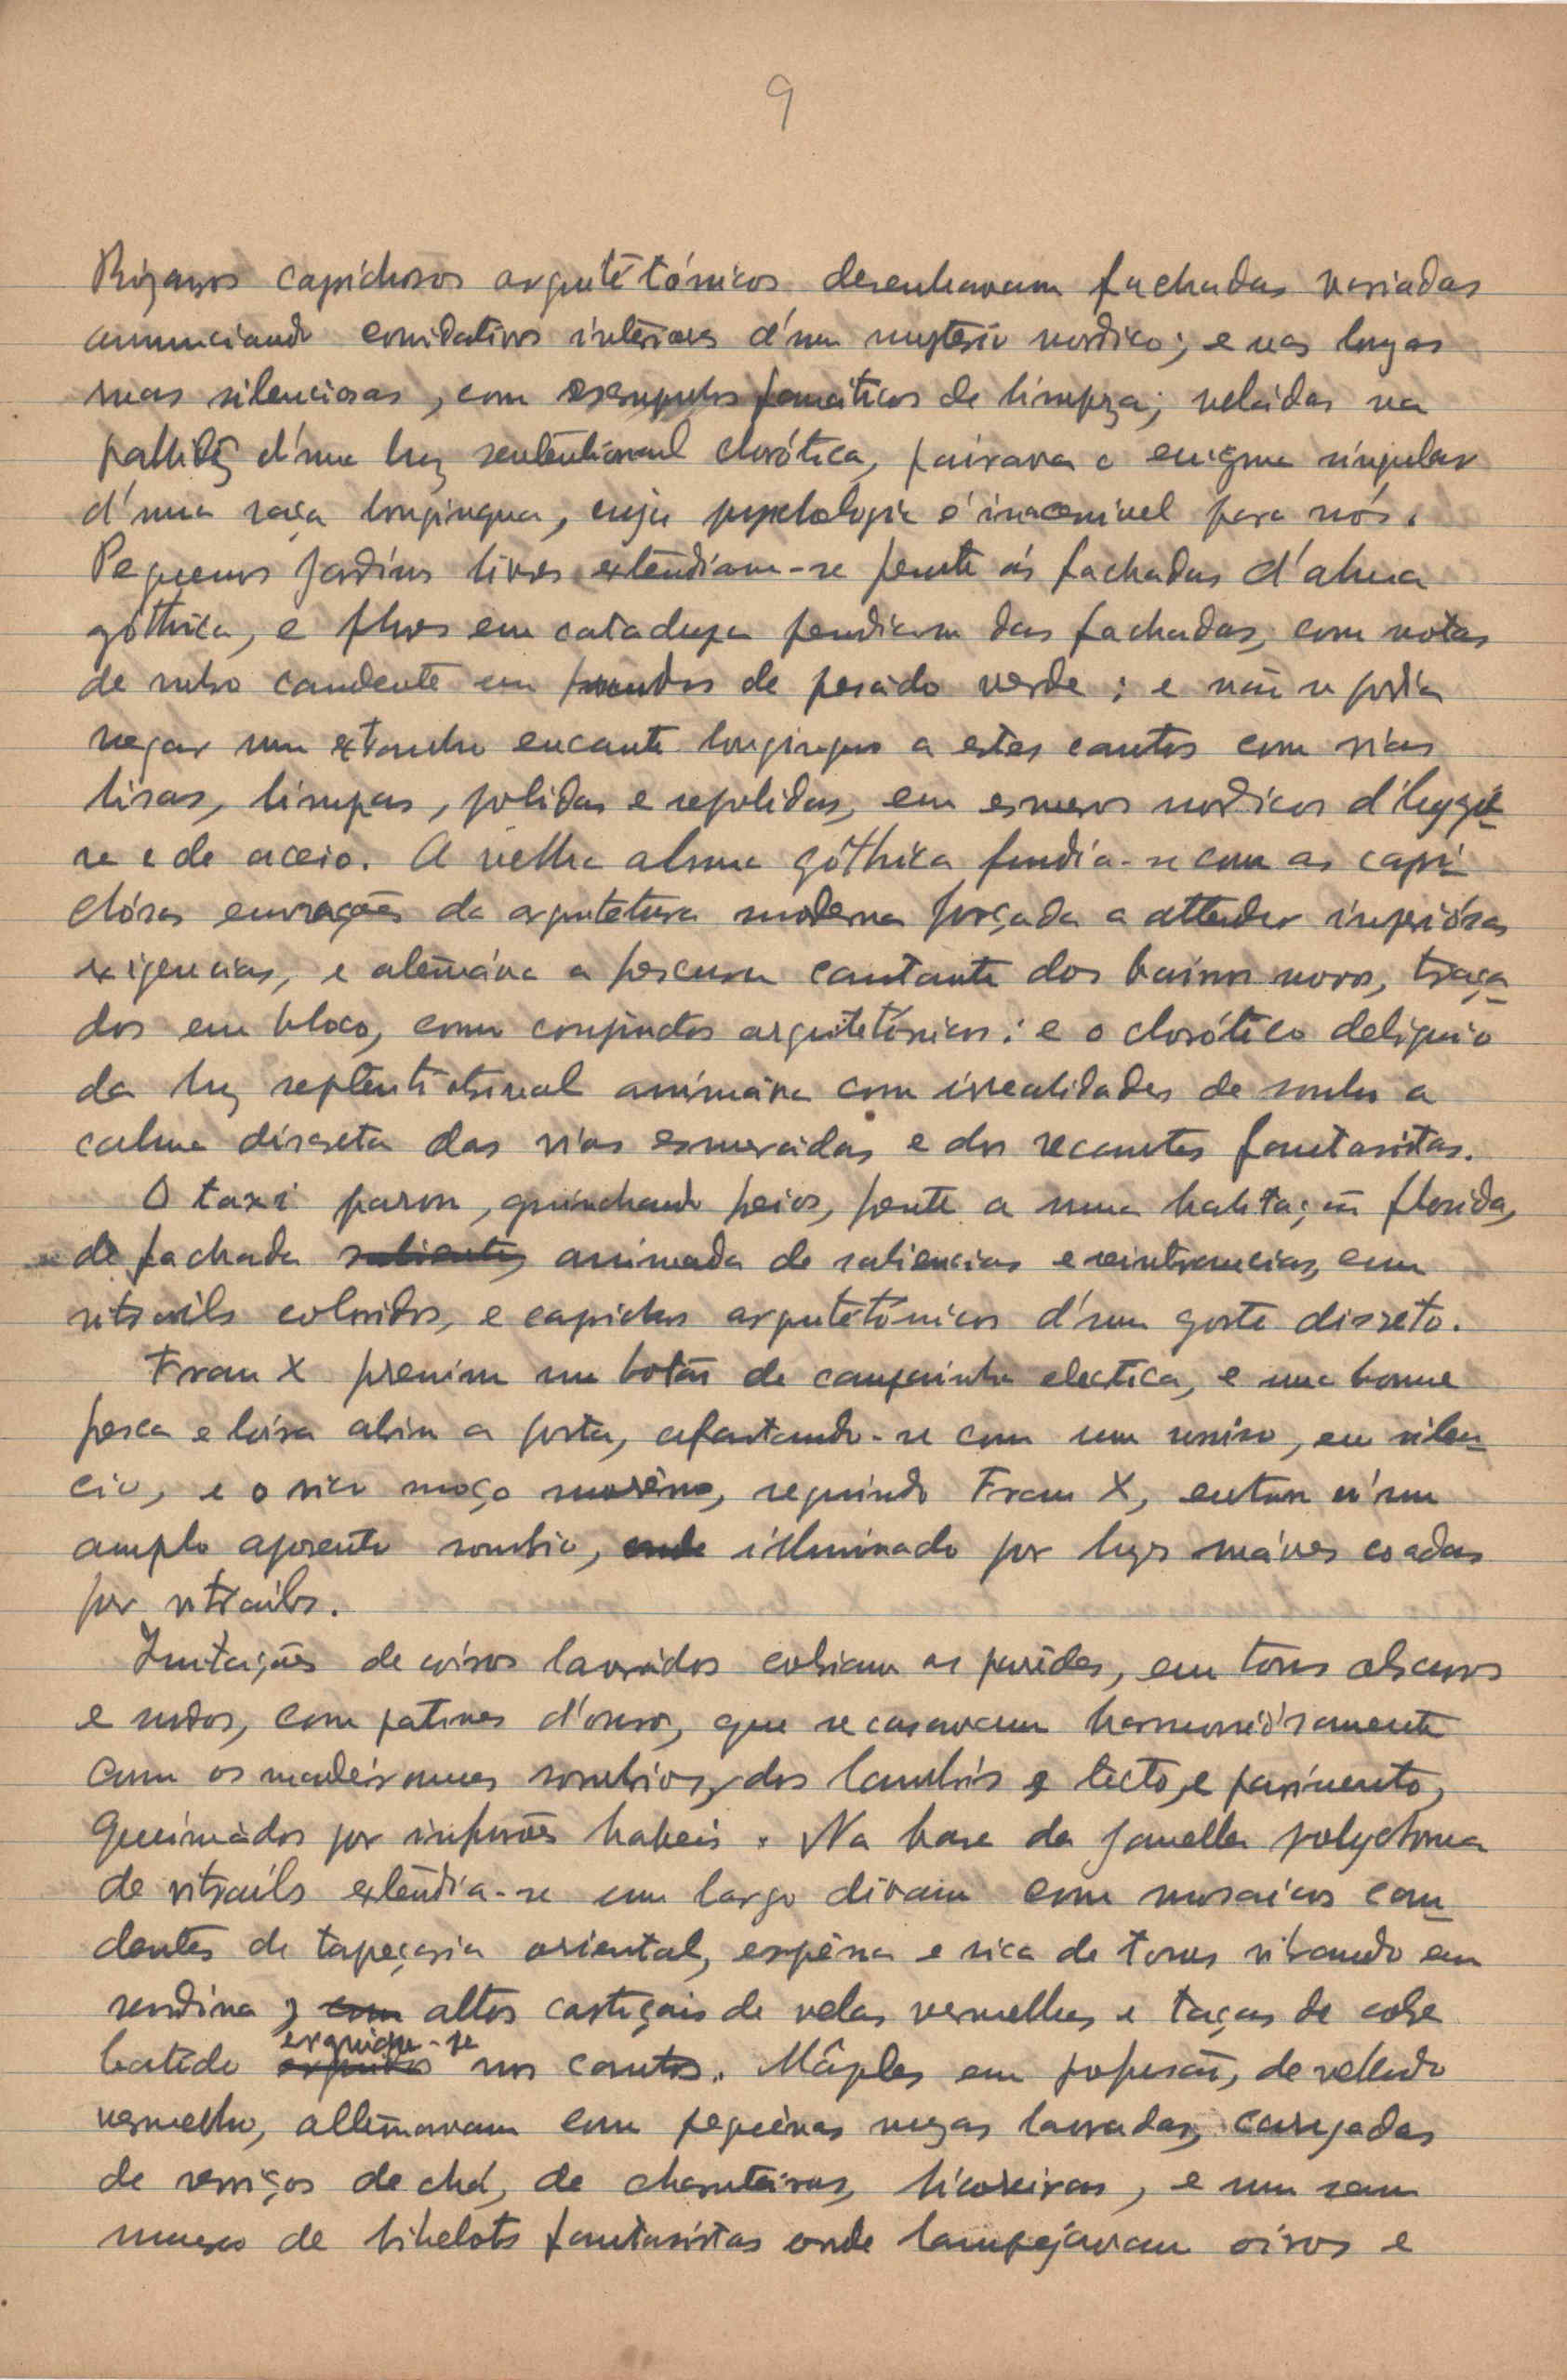 9
capichosos arquitétónicos desenhavam fachadas variadas
annunciando convidativos intèriores d'um mysterio nordico; e nas longas
ruas silenciosas, com escrupulos fanáticos de limpeza; veladas na
pallidez d'uma luz clorótica, pairava o enigma singular
d'uma raça longinqua, cuja psychologia é inacessivel para nós.
Pequenos jardins livres extendiam-se frente ás fachadas d'alma
góthica, e flores em catadupa pendiam das fachadas, com notas
de rubro candente em fundos de pesádo verde; e não se podia
negar um extranho encanto longinquo a estes cantos com vias
lisas, limpas, polidas e repolidas, em esmeros nordicos d'hygié-
ne e de aceio. A velha alma góthica fundia-se com as capri
chósas da arquitetura moderna forçada a attender imperiósas
exigencias, e alternáva a frescura cantante dos bairros novos, traça-
dos em bloco, como conjuntos arquitetónicos; e o clorótico deliquio
da luz septentrional animáva com irrealidades de sonho a
calma discreta das vias esmeradas e dos recantos fantasistas.
O taxi parou, guinchando freios, frente a uma habitação florida,
de fachada saliente, animada de saliencias e reintrancias, com
vitrails coloridos, e capichos arquitetónicos d'um gosto discreto.
Frau X premiu um botão de campainha electica, e uma bonne
fresca e loira abriu a porta, afastando-se com um sorriso, em silen-
cio, e o rico moço morêno, seguindo Frau X, entrou n'um
amplo aposento sombrio, onde illuminado por luzes suáves coadas
por vitrails.
Imitações de coiros lavrádos cobriam as parêdes, em tons obscuros
e rudos, com patines d'ouro, que se casavam harmoniósamente
com os madeiramens sombrios, dos lambris e tecto, e pavimento,
queimádos por infusões habeis. Na base da janella polychroma
de vitrails extendia-se um largo divan com mosaicos can-
dentes de tapeçaria oriental, espêssa e rica de tons vibrando em
surdina; com altos castiçais de velas vermelhas e taças de cobre
batido erguidos erguiam-se nos cantos. Mâples em profusão, de velludo
vermelho, alternavam com pequênas mezas lavradas, carregadas
de serviços de chá, de charuteiras, licoreiras, e um sem
numero de bibelots fantasistas onde lampejavam oiros e